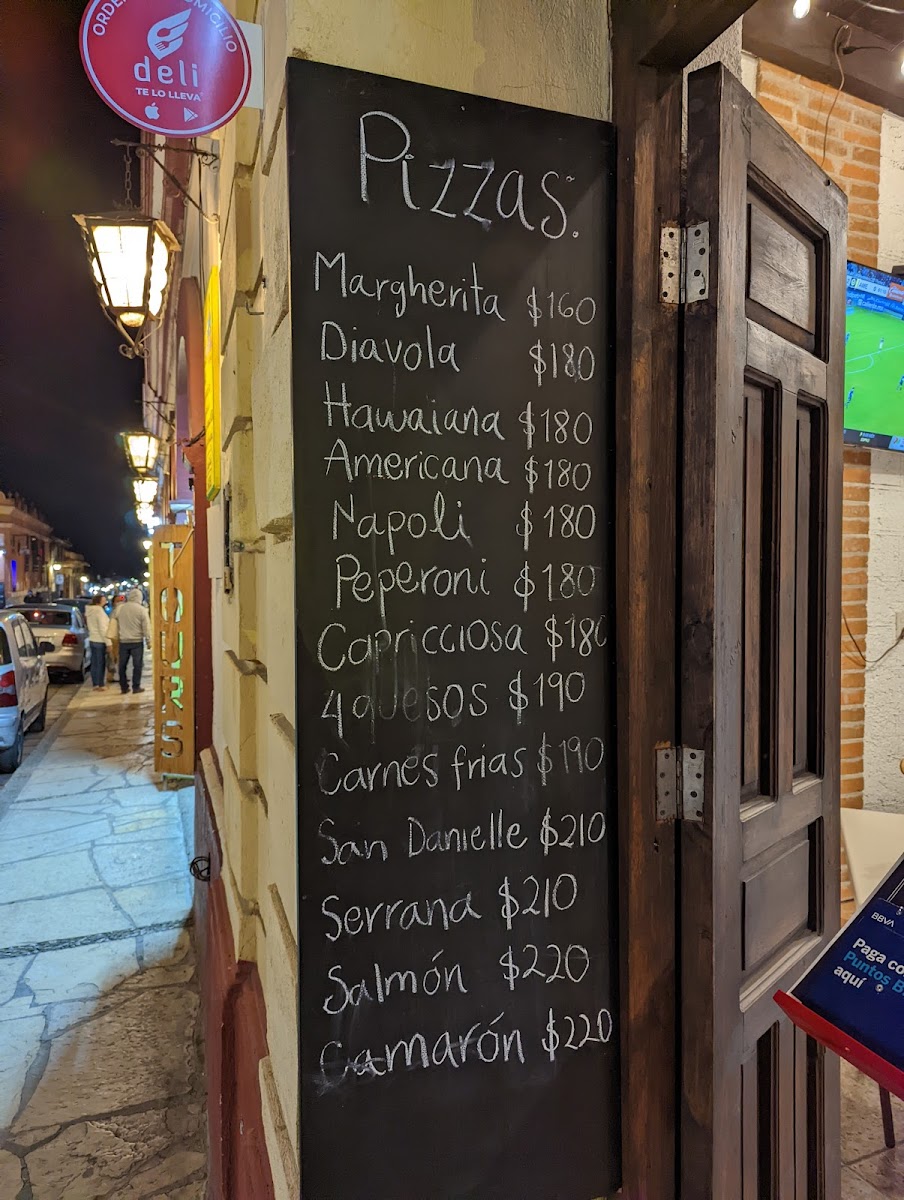 ORDE
OMICILIO
deli
TE LO LLEVA
Pizzas:
Margherita $160
Diavola $180
Hawaiana $180
Americana $180
Napoli $180
Peperoni $180
Capricciosa $180
4 quesos $190
Carnes frias $190
San Danielle $210
Serrana $210
Salmón $220
Camarón $220
TOURS
BBVA
Paga co
Puntos B
aquí